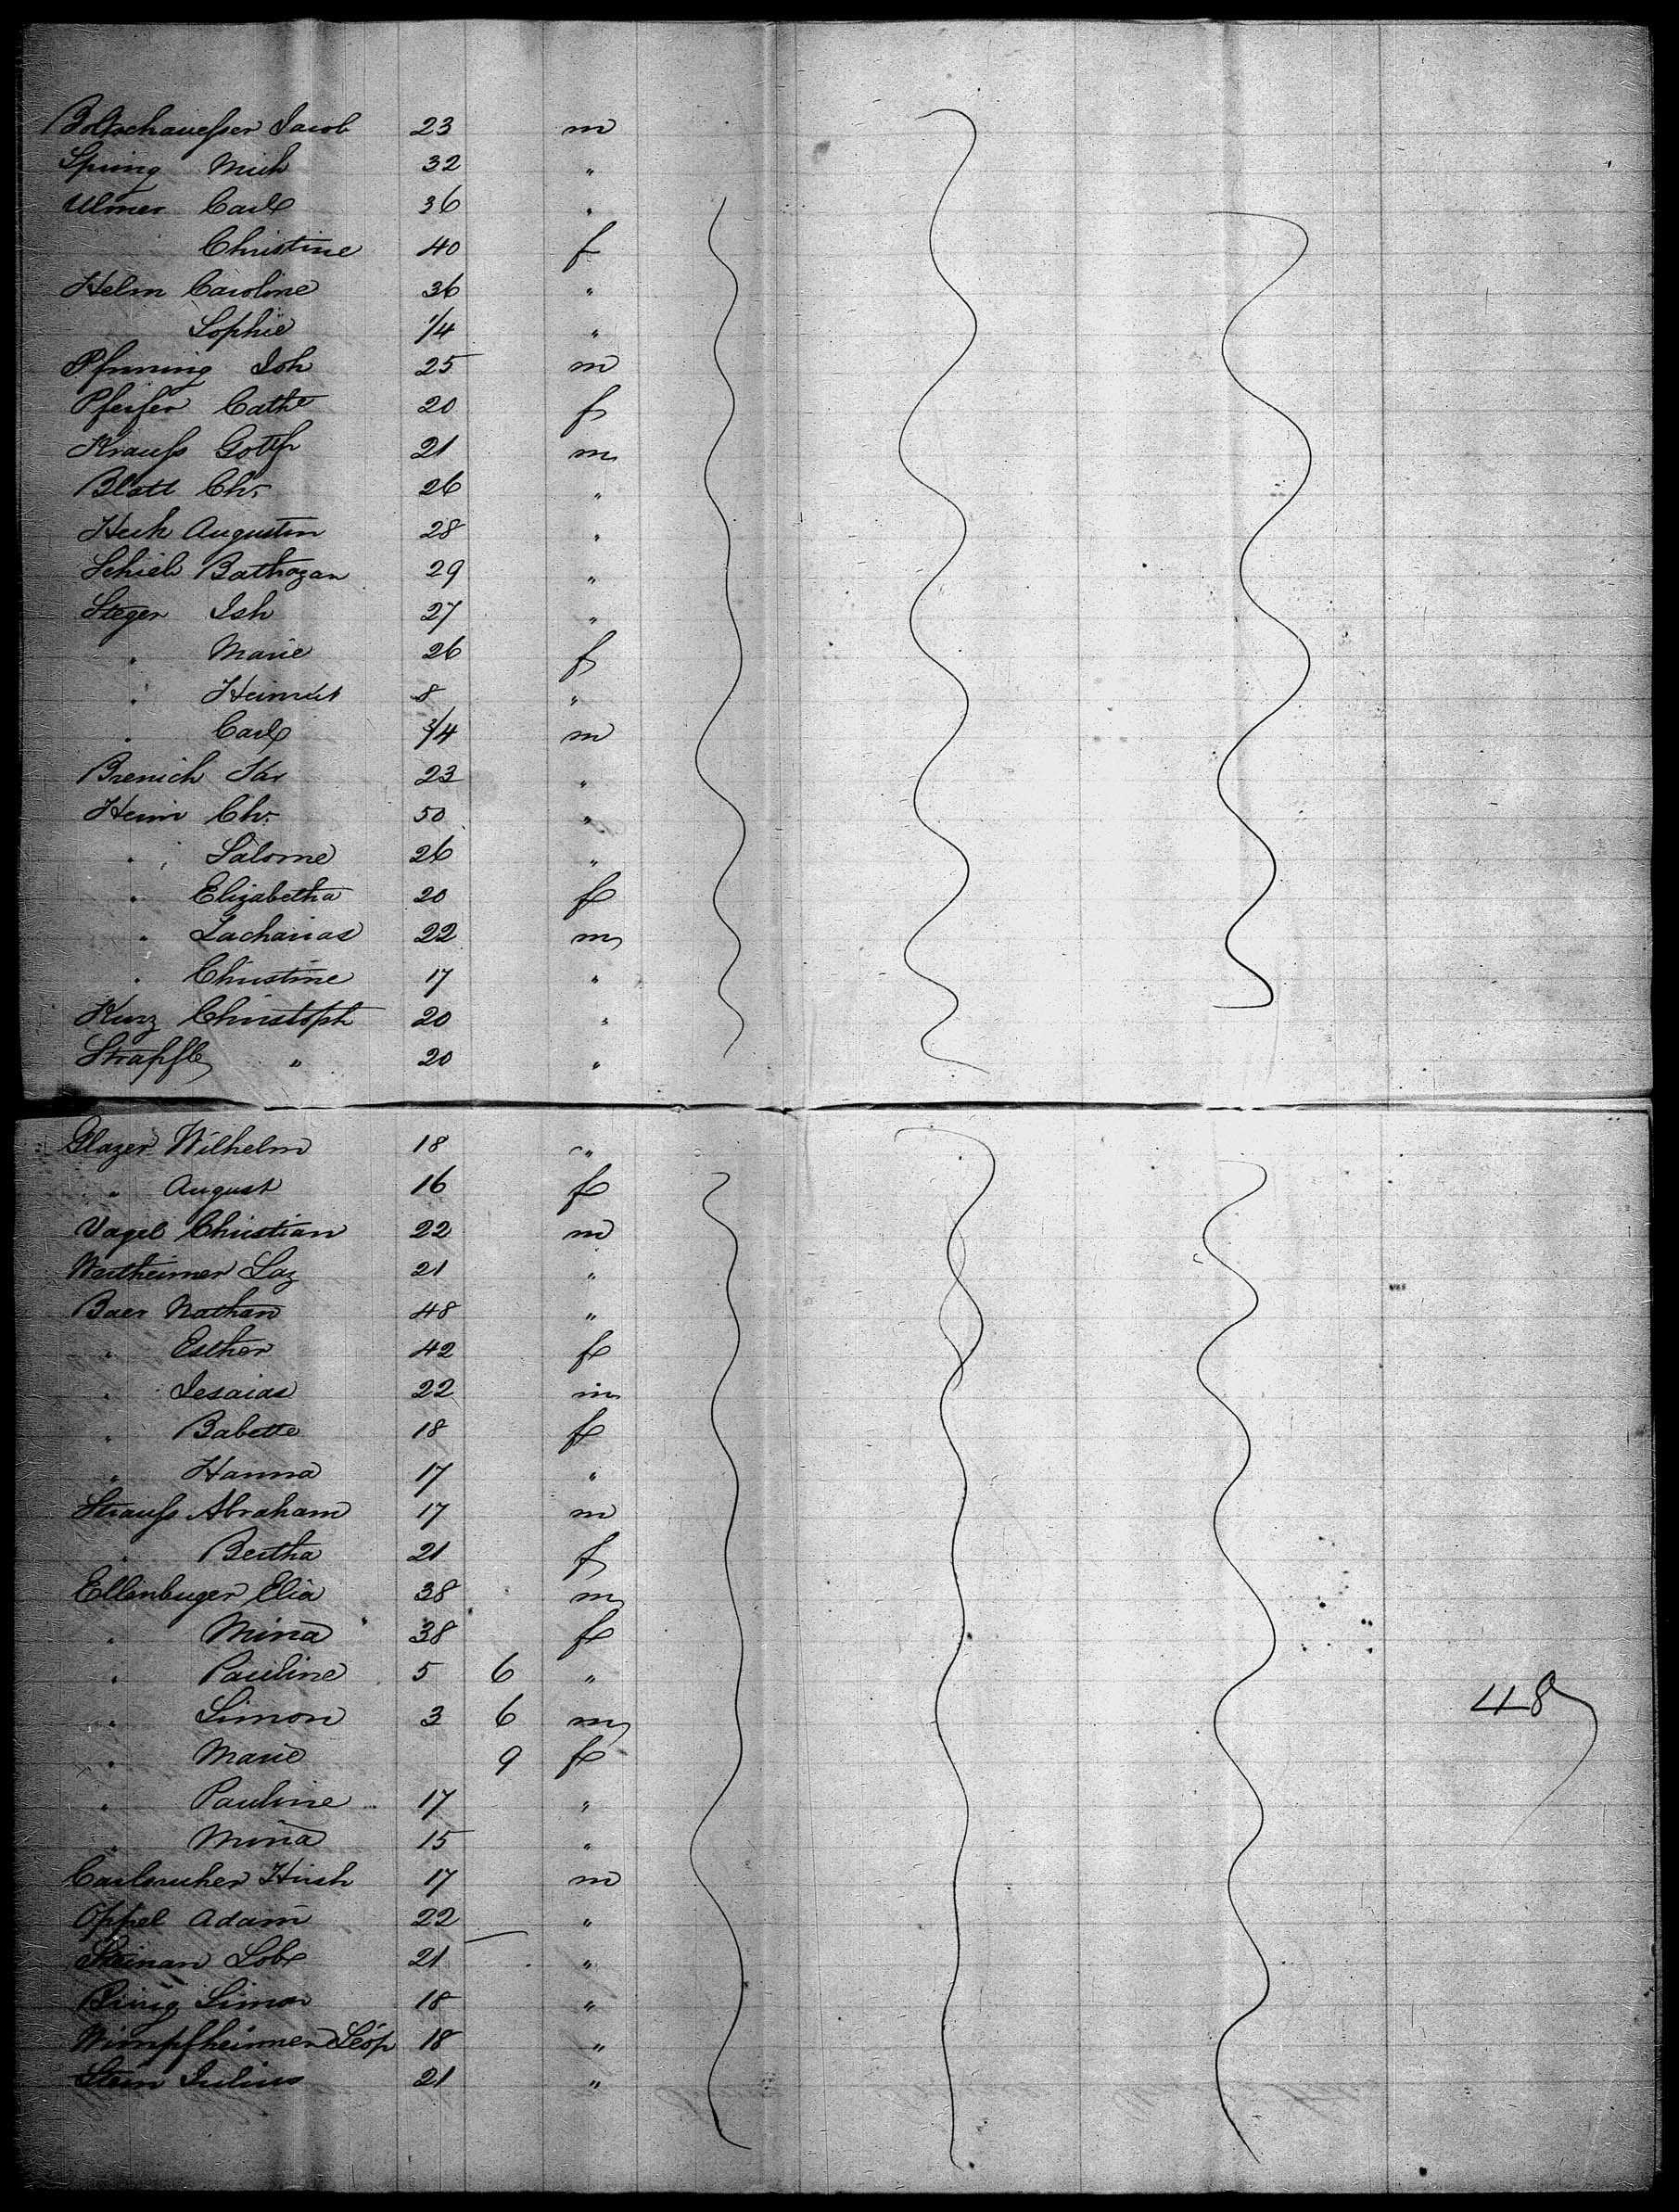 Boltschauesser Jacob 23 m
Spring Mich 32 "
Ulmer Carl 36 "
Christine 40 f
Helm Caroline 36 "
Sophie 1/4 "
Pfnning Joh 25 m
Pfeifer Cathe 20 f
Krauss Gottfr 21 m
Blatt Chr. 26 "
Heck Augustin 28 "
Schieb 29 "
Steger Joh 27 "
" Marie 26 f
" 8 "
" Carl 3/4 m
Brenich 23 "
Heim Chr. 50 "
" Salome 26 "
" Elizabetha 20 f
" Zacharias 22 m
" Christine 17 "
Kurz Christoph 20 "
Strapfle " 20 "
Glazer Wilhelm 18 "
" August 16 f
Vagel Christian 22 m
Wertheimer Laz 21 "
Baer Nathan 48 "
" Esther 42 f
" Jesaias 22 m
" Babette 18 f
" Hanna 17 "
Strauss Abraham 17 m
" Bertha 21 f
Ellenbuger Elia 38 m
" Mina 38 f
" Pauline 5 6 "
" Simon 3 6 m
" Marie 9 f
" Pauline 17 "
" Mina 15 "
Carlsruher Hirsh 17 m
Oppel Adam 22 "
Steinan Lob 21 "
Simon 18 "
Wimpfheimer Leop 18 "
Stein Julius 21 "
48